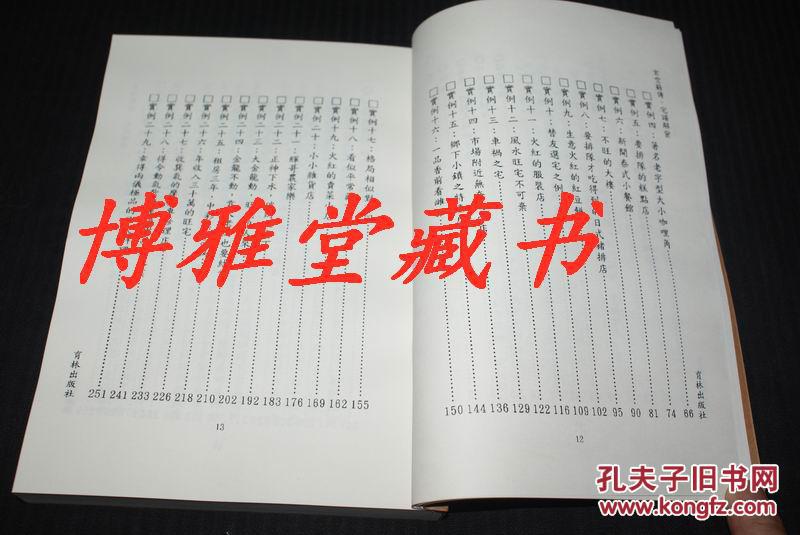 宅譜解密
□實例四：著名老字型大小咖哩角……66
□實例五：要排隊的糕點店……74
□實例六：新開泰式小餐館……81
□實例七：不旺的大樓……90
□實例八：要排隊才吃得 日 豬排店……95
□實例九：生意火紅的紅豆餅……102
□實例十：替友選宅之例……109
□實例十一：火紅的服裝店……116
□實例十二：風水旺宅不可棄……122
□實例十三：車禍之宅……129
□實例十四：市場附近無 店……136
□實例十五：鄉下小鎮之……144
□實例十六：一品香前看雌……150
育林出版社
12
□實例十七：格局相似……155
□實例十八：看似平常……162
□實例十九：火紅的賣菜……169
□實例二十：小小雜貨店……176
□實例二十一：輝哥農家樂……183
□實例二十二：正神下水……192
□實例二十三：大金龍動……202
□實例二十四：金龍不動……210
□實例二十五：租房三年……218
□實例二十六：年收八十萬的旺宅……226
□實例二十七：收贊氣的摩……233
□實例二十八：得令動氣……241
□實例二十九：拿得出儀極品的……251
育林出版社
13
博雅堂藏书
孔夫子旧书网
www.kongfz.com